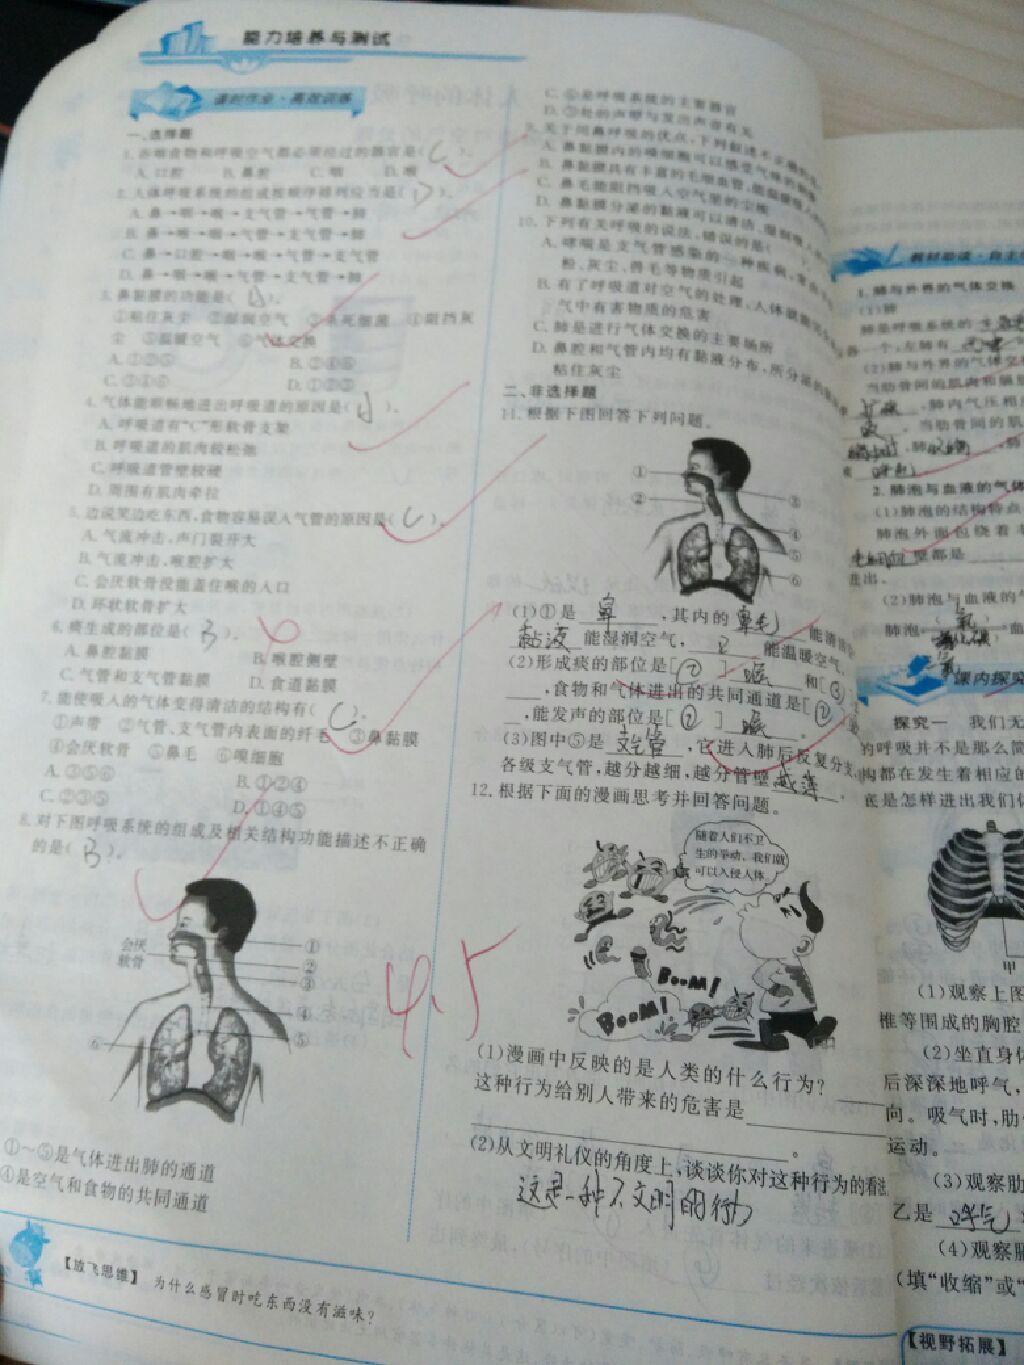 能力培养与测试
课时作业·高效训练
一、选择题
1.吞咽食物和呼吸空气都必须经过的器官是( C )。
A.口腔 B.鼻腔 C.咽 D.喉
2.人体呼吸系统的组成按顺序排列应当是( D )。
A.鼻→咽→喉→支气管→气管→肺
B.鼻→喉→咽→气管→支气管→肺
C.鼻→口腔→咽→喉→气管→支气管
D.鼻→咽→喉→气管→支气管→肺
3.鼻黏膜的功能是( )。
①粘住灰尘 ②湿润空气 ③杀死细菌 ④阻挡灰
尘 ⑤温暖空气 ⑥气体交换
A.①②⑤ B.②④⑥
C.③④⑥ D.①②③
4.气体能顺畅地进出呼吸道的原因是( )。
A.呼吸道有“C”形软骨支架
B.呼吸道的肌肉较松弛
C.呼吸道管壁较硬
D.周围有肌肉牵拉
5.边说笑边吃东西,食物容易误入气管的原因是( C )。
A.气流冲击,声门裂开大
B.气流冲击,喉腔扩大
C.会厌软骨没能盖住喉的入口
D.环状软骨扩大
6.痰生成的部位是( B )。
A.鼻腔黏膜 B.喉腔侧壁
C.气管和支气管黏膜 D.食道黏膜
7.能使吸入的气体变得清洁的结构有( C )。
①声带 ②气管、支气管内表面的纤毛 ③鼻黏膜
④会厌软骨 ⑤鼻毛 ⑥嗅细胞
A.③⑤⑥ B.①②④
C.②③⑤ D.①④⑤
8.对下图呼吸系统的组成及相关结构功能描述不正确
的是( B )。
会厌
软骨
①
②
③
④
⑤
⑥
①～⑤是气体进出肺的通道
④是空气和食物的共同通道
【放飞思维】 为什么感冒时吃东西没有滋味?
C.⑥是呼吸系统的主要器官
D.③处的声带与发出声音有关
9.关于用鼻呼吸的优点,下列叙述不正确的
A.鼻黏膜内的嗅细胞可以感受气味的刺激
B.鼻黏膜具有丰富的毛细血管,能温暖吸入的
C.鼻毛能阻挡吸入空气里的尘埃
D.鼻黏膜分泌的黏液可以清洁、湿润吸入
10.下列有关呼吸的说法,错误的是(
A.哮喘是支气管感染的一种疾病,常由
粉、灰尘、兽毛等物质引起
B.有了呼吸道对空气的处理,人体就能完全
气中有害物质的危害
C.肺是进行气体交换的主要场所
D.鼻腔和气管内均有黏液分布,所分泌的
粘住灰尘
二、非选择题
11.根据下图回答下列问题。
①
②
③
④
⑤
⑥
(1)①是 鼻 ,其内的 鼻毛 能清洁
黏液 能湿润空气, 能温暖空气。
(2)形成痰的部位是[ ② ] 喉 和[ ③ ]
,食物和气体进出的共同通道是[ ② ]
,能发声的部位是[ ② ] 喉 。
(3)图中⑤是 支气管 ,它进入肺后反复分支,
各级支气管,越分越细,越分管壁 越薄 。
12.根据下面的漫画思考并回答问题。
随着人们不卫
生的举动,我们就
可以入侵人体
BOOM!
BOOM!
(1)漫画中反映的是人类的什么行为?
这种行为给别人带来的危害是
。
(2)从文明礼仪的角度上,谈谈你对这种行为的看法
这是一种不文明的行为
4.5
教材助读·自主
1.肺与外界的气体交换
(1)肺
肺是呼吸系统的
个,左肺有
(2)肺与外界的气体交
当肋骨间的肌肉和膈肌
,肺内气压相
当肋骨间的肌
2.肺泡与血液的气体
(1)肺泡的结构特点
肺泡外面包绕着
壁都是
进出。
(2)肺泡与血液的气
肺泡 氧
课内探究
探究一 我们无
的呼吸并不是那么简
构都在发生着相应的
底是怎样进出我们
甲
(1)观察上图
椎等围成的胸腔
(2)坐直身体
后深深地呼气,
向。吸气时,肋
运动。
(3)观察肋
乙是 呼气
(4)观察膈
(填“收缩”或“
【视野拓展】